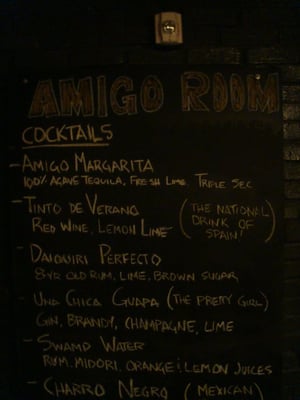 AMIGO ROOM
COCKTAILS
- AMIGO MARGARITA
100% AGAVE TEQUILA, FRESH LIME, TRIPLE SEC
- TINTO DE VERANO (THE NATIONAL DRINK OF SPAIN!)
RED WINE, LEMON LIME
- DAIQUIRI PERFECTO
8 YR OLD RUM, LIME, BROWN SUGAR
- UNA CHICA GUAPA (THE PRETTY GIRL)
GIN, BRANDY, CHAMPAGNE, LIME
- SWAMP WATER
RUM, MIDORI, ORANGE & LEMON JUICES
- CHARRO NEGRO (MEXICAN)